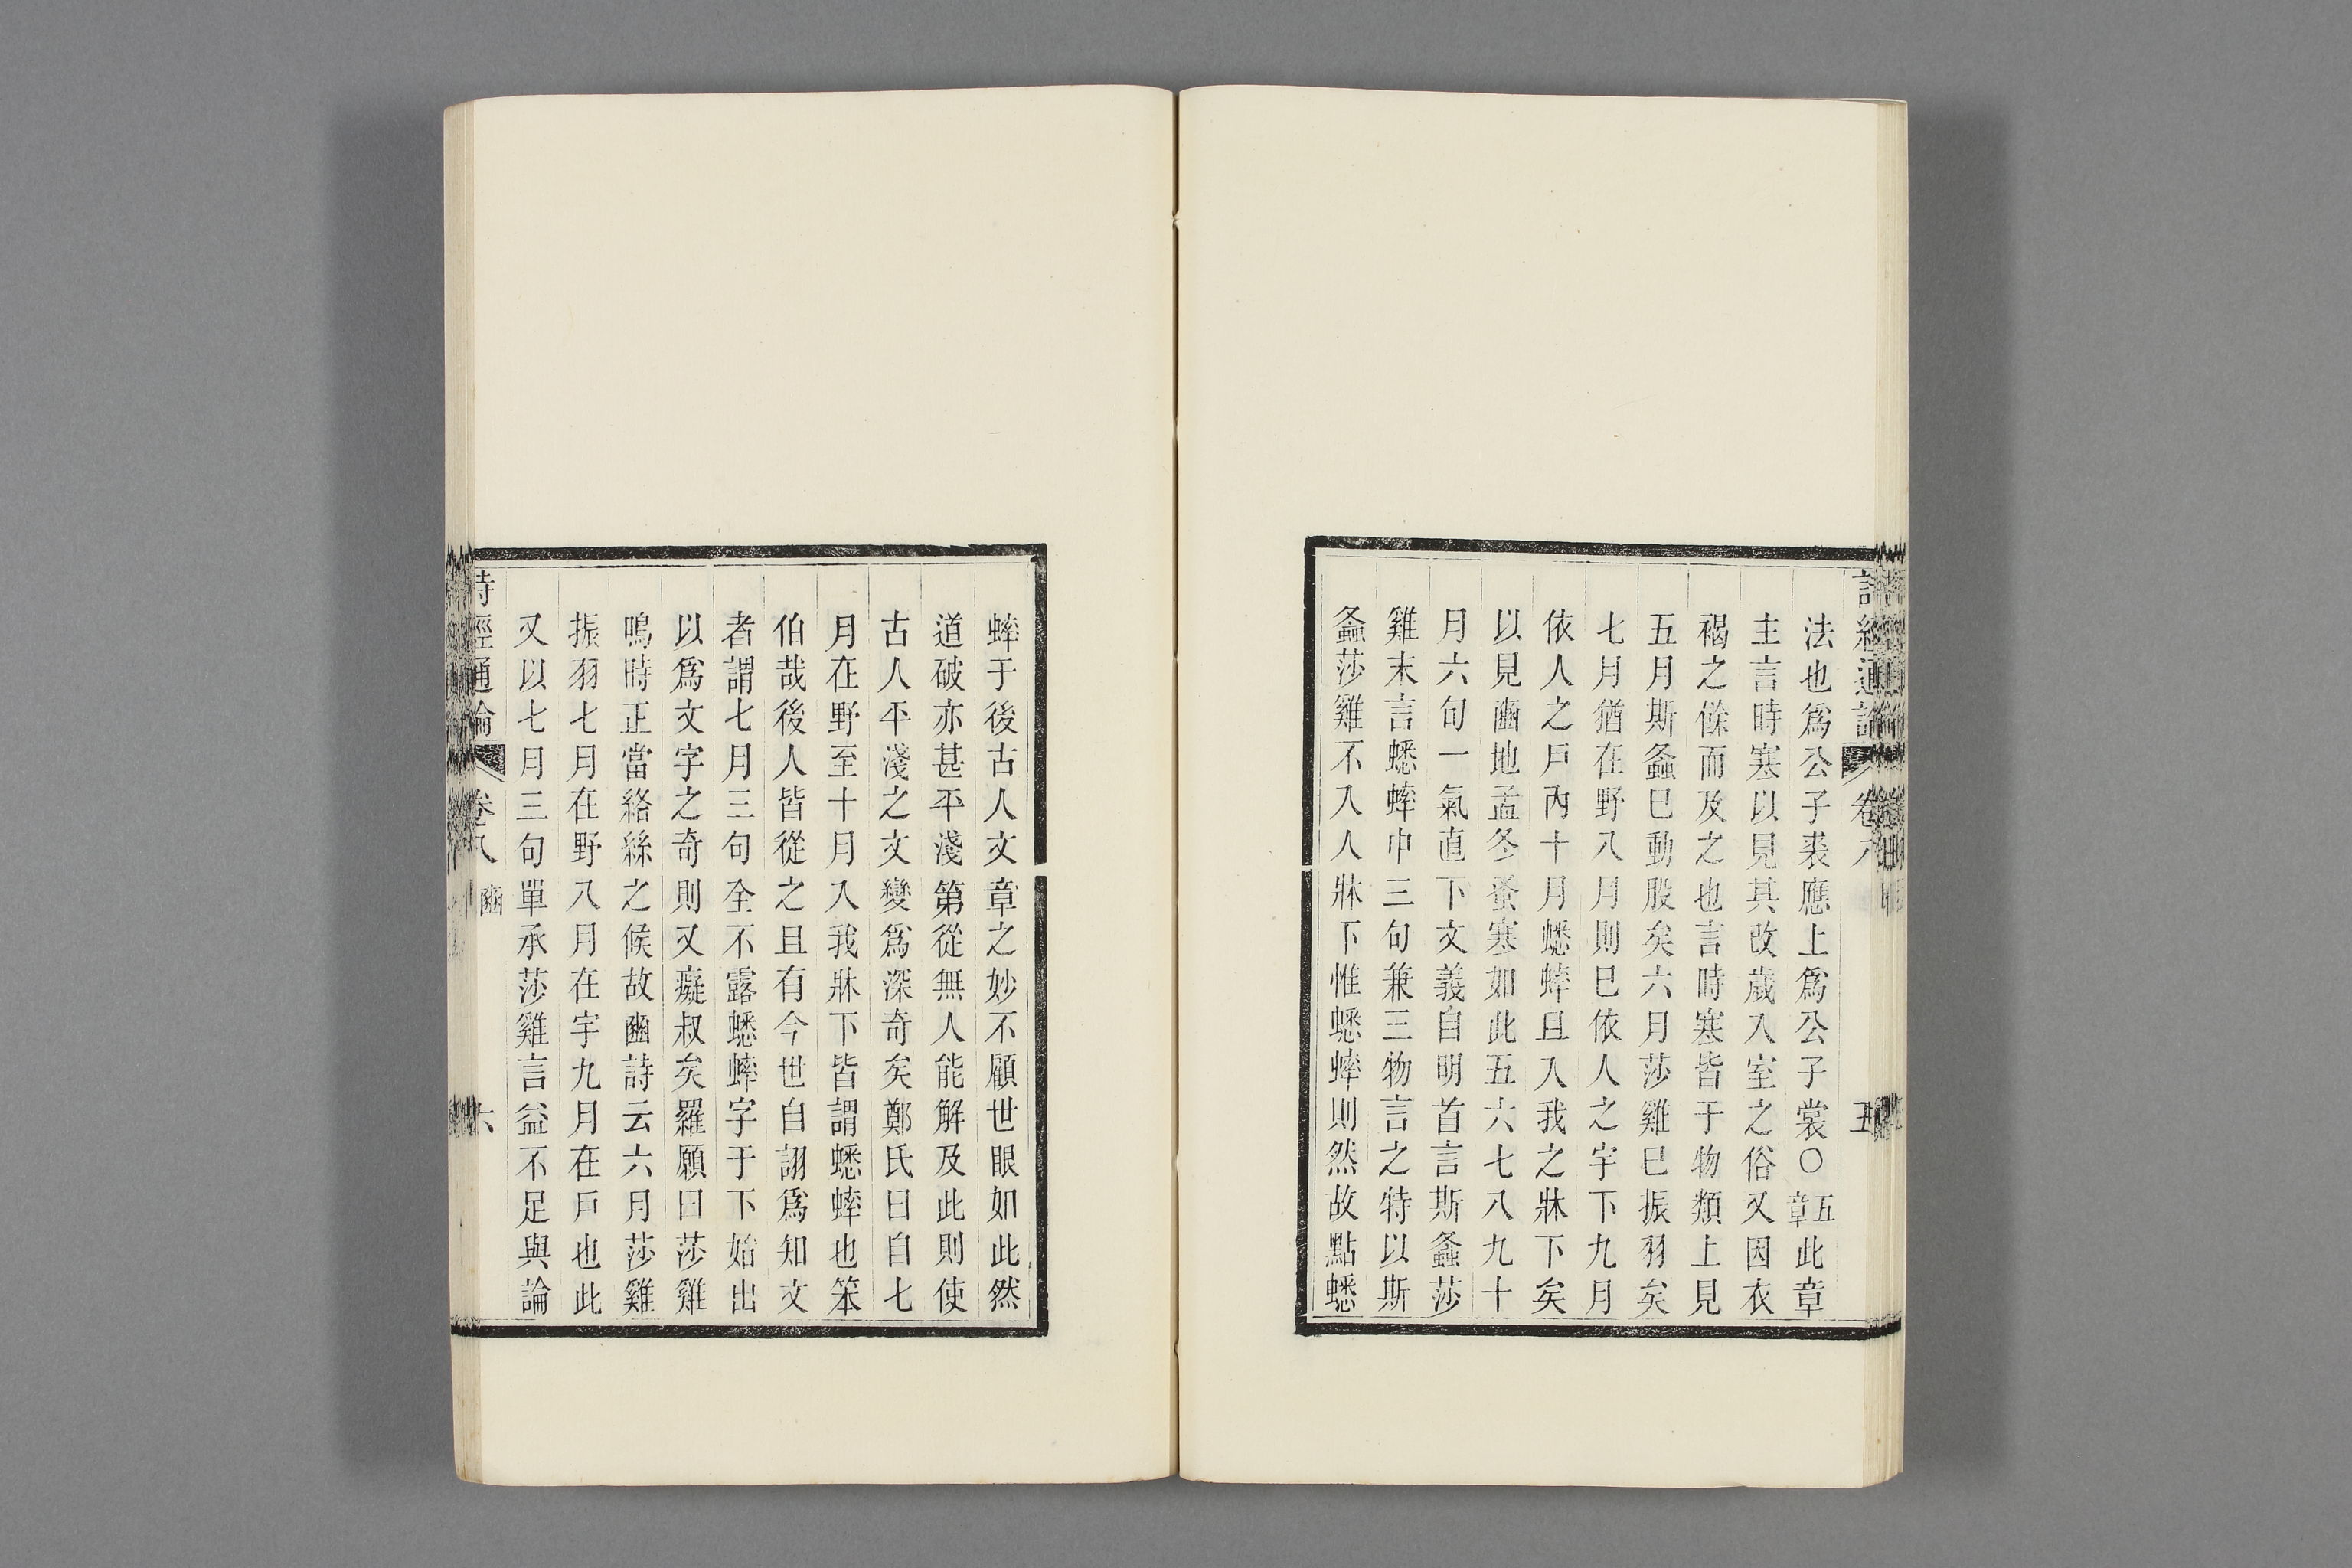 法也爲公子裘應上爲公子裳○五章此章
主言時寒以見其改歲入室之俗又因衣
褐之餘而及之也言時寒皆于物類上見
五月斯螽巳動股矣六月莎雞巳振羽矣
七月猶在野八月則巳依人之宇下九月
依人之戶內十月蟋蟀且入我之牀下矣
以見豳地孟冬蚤寒如此五六七八九十
月六句一氣直下文義自明首言斯螽莎
雞末言蟋蟀中三句兼三物言之特以斯
螽莎雞不入人牀下惟蟋蟀則然故點蟋
蟀于後古人文章之妙不顧世眼如此然
道破亦甚平淺第從無人能解及此則使
古人平淺之文變爲深奇矣鄭氏曰自七
月在野至十月入我牀下皆謂蟋蟀也笨
伯哉後人皆從之且有今世自詡爲知文
者謂七月三句全不露蟋蟀字于下始出
以爲文字之奇則又癡叔矣羅願曰莎雞
鳴時正當絡絲之候故豳詩云六月莎雞
振羽七月在野八月在宇九月在戶也此
又以七月三句單承莎雞言益不足與論
詩經通論 卷八 豳 六